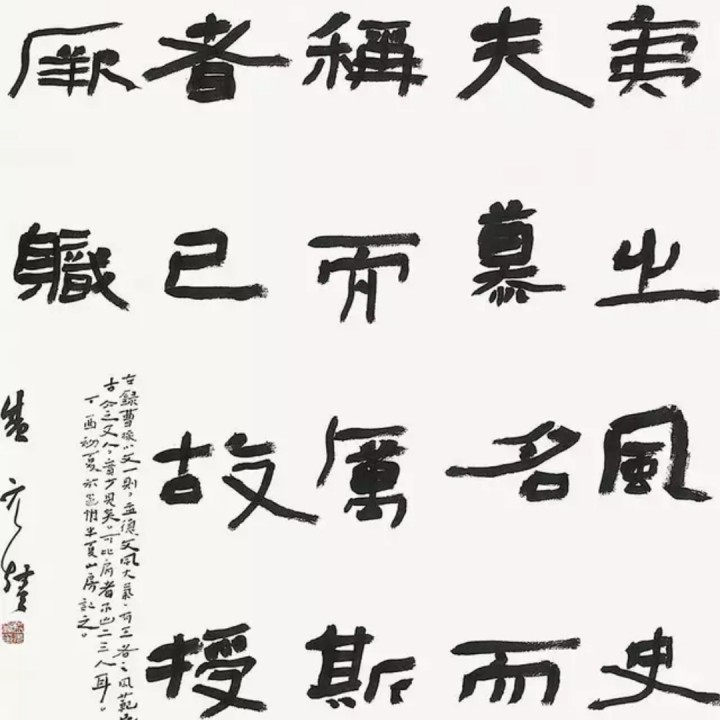 夷之風史
夫慕名而
稱而厲斯
者已故授
厥職
右錄曹操文一則,孟德文風大氣,有王者之風範
古今文人,昔少見矣。可比肩者不出二三人耳。
丁酉初夏於邕州半夏山房記之。